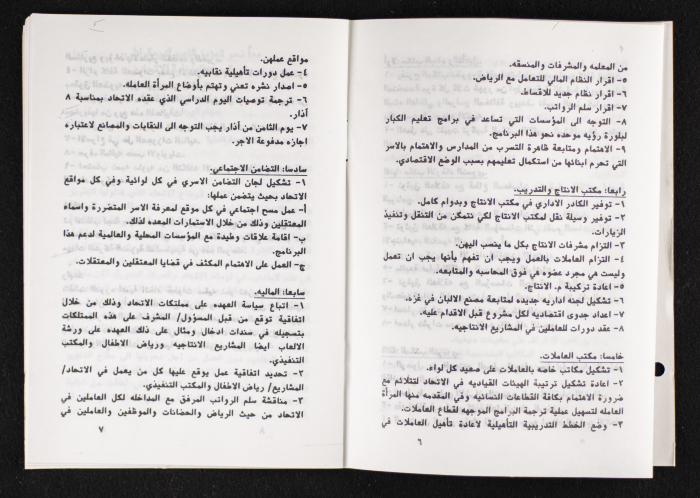 من المعلمه والمشرفات والمنسقه.
٥- اقرار النظام المالي للتعامل مع الرياض.
٦- اقرار نظام جديد للاقساط.
٧- اقرار سلم الرواتب.
٨- التوجه الى المؤسسات التي تساعد في برامج تعليم الكبار
لبلورة رؤيه موحده نحو هذا البرنامج.
٩- الاهتمام ومتابعة ظاهرة التسرب من المدارس والاهتمام بالاسر
التي تحرم ابنائها من استكمال تعليمهم بسبب الوضع الاقتصادي.
رابعا: مكتب الانتاج والتدريب.
١- توفير الكادر الاداري في مكتب الانتاج وبدوام كامل.
٢- توفير وسيلة نقل لمكتب الانتاج لكي نتمكن من التنقل وتنفيذ
الزيارات.
٣- التزام مشرفات الانتاج بكل ما ينصب اليهن.
٤- التزام العاملات بالعمل ويجب ان تفهم بأنها يجب ان تعمل
وليست هي مجرد عضوه هي فوق المحاسبه والمتابعه.
٥- اعادة تركيبة م. الانتاج.
٦- تشكيل لجنه اداريه جديده لمتابعة مصنع الالبان في غزه.
٧- اعداد جدوى اقتصاديه لكل مشروع قبل الاقدام عليه.
٨- عقد دورات للعاملين في المشاريع الانتاجيه.
خامسا: مكتب العاملات.
١- تشكيل مكاتب خاصه بالعاملات على صعيد كل لواء.
٢- اعادة تشكيل ترتيبة الهيئات القياديه في الاتحاد لتتلائم مع
ضرورة الاهتمام بكافة القطاعات النسائيه وفي المقدمه منها المرأة
العامله لتسهيل عملية ترجمة البرامج الموجهه لقطاع العاملات.
٣- وضع الخطط التدريبية التأهيلية لاعادة تأهيل العاملات في
٦
مواقع عملهن.
٤- عمل دورات تأهيلية نقابيه.
٥- اصدار نشره تعني وتهتم بأوضاع المرأة العامله.
٦- ترجمة توصيات اليوم الدراسي الذي عقده الاتحاد بمناسبة ٨
آذار.
٧- يوم الثامن من آذار يجب التوجه الى النقابات والمصانع لاعتباره
اجازه مدفوعة الاجر.
سادسا: التضامن الاجتماعي.
١- تشكيل لجان التضامن الاسري في كل لوائية وفي كل مواقع
الاتحاد بحيث يتضمن عملها:
أ- عمل مسح اجتماعي في كل موقع لمعرفة الاسر المتضررة واسماء
المعتقلين وذلك من خلال الاستمارات المعده لذلك.
ب- اقامة علاقات وطيدة مع المؤسسات المحلية والعالمية لدعم هذا
البرنامج.
ج- العمل على الاهتمام المكثف في قضايا المعتقلين والمعتقلات.
سابعا: الماليه.
١- اتباع سياسة العهده على مملتكات الاتحاد وذلك من خلال
اتفاقية توقع من قبل المسؤول/ المشرف على هذه الممتلكات
بتسجيله في سندات ادخال ومثال على ذلك العهده على ورشة
الالعاب ايضا المشاريع الانتاجيه ورياض الاطفال والمكتب
التنفيذي.
٢- تحديد اتفاقية عمل يوقع عليها كل من يعمل في الاتحاد/
المشاريع/ رياض الاطفال والمكتب التنفيذي.
٣- مناقشة سلم الرواتب المرفق مع المداخله لكل العاملين في
الاتحاد من حيث الرياض والحضانات والموظفين والعاملين في
٧